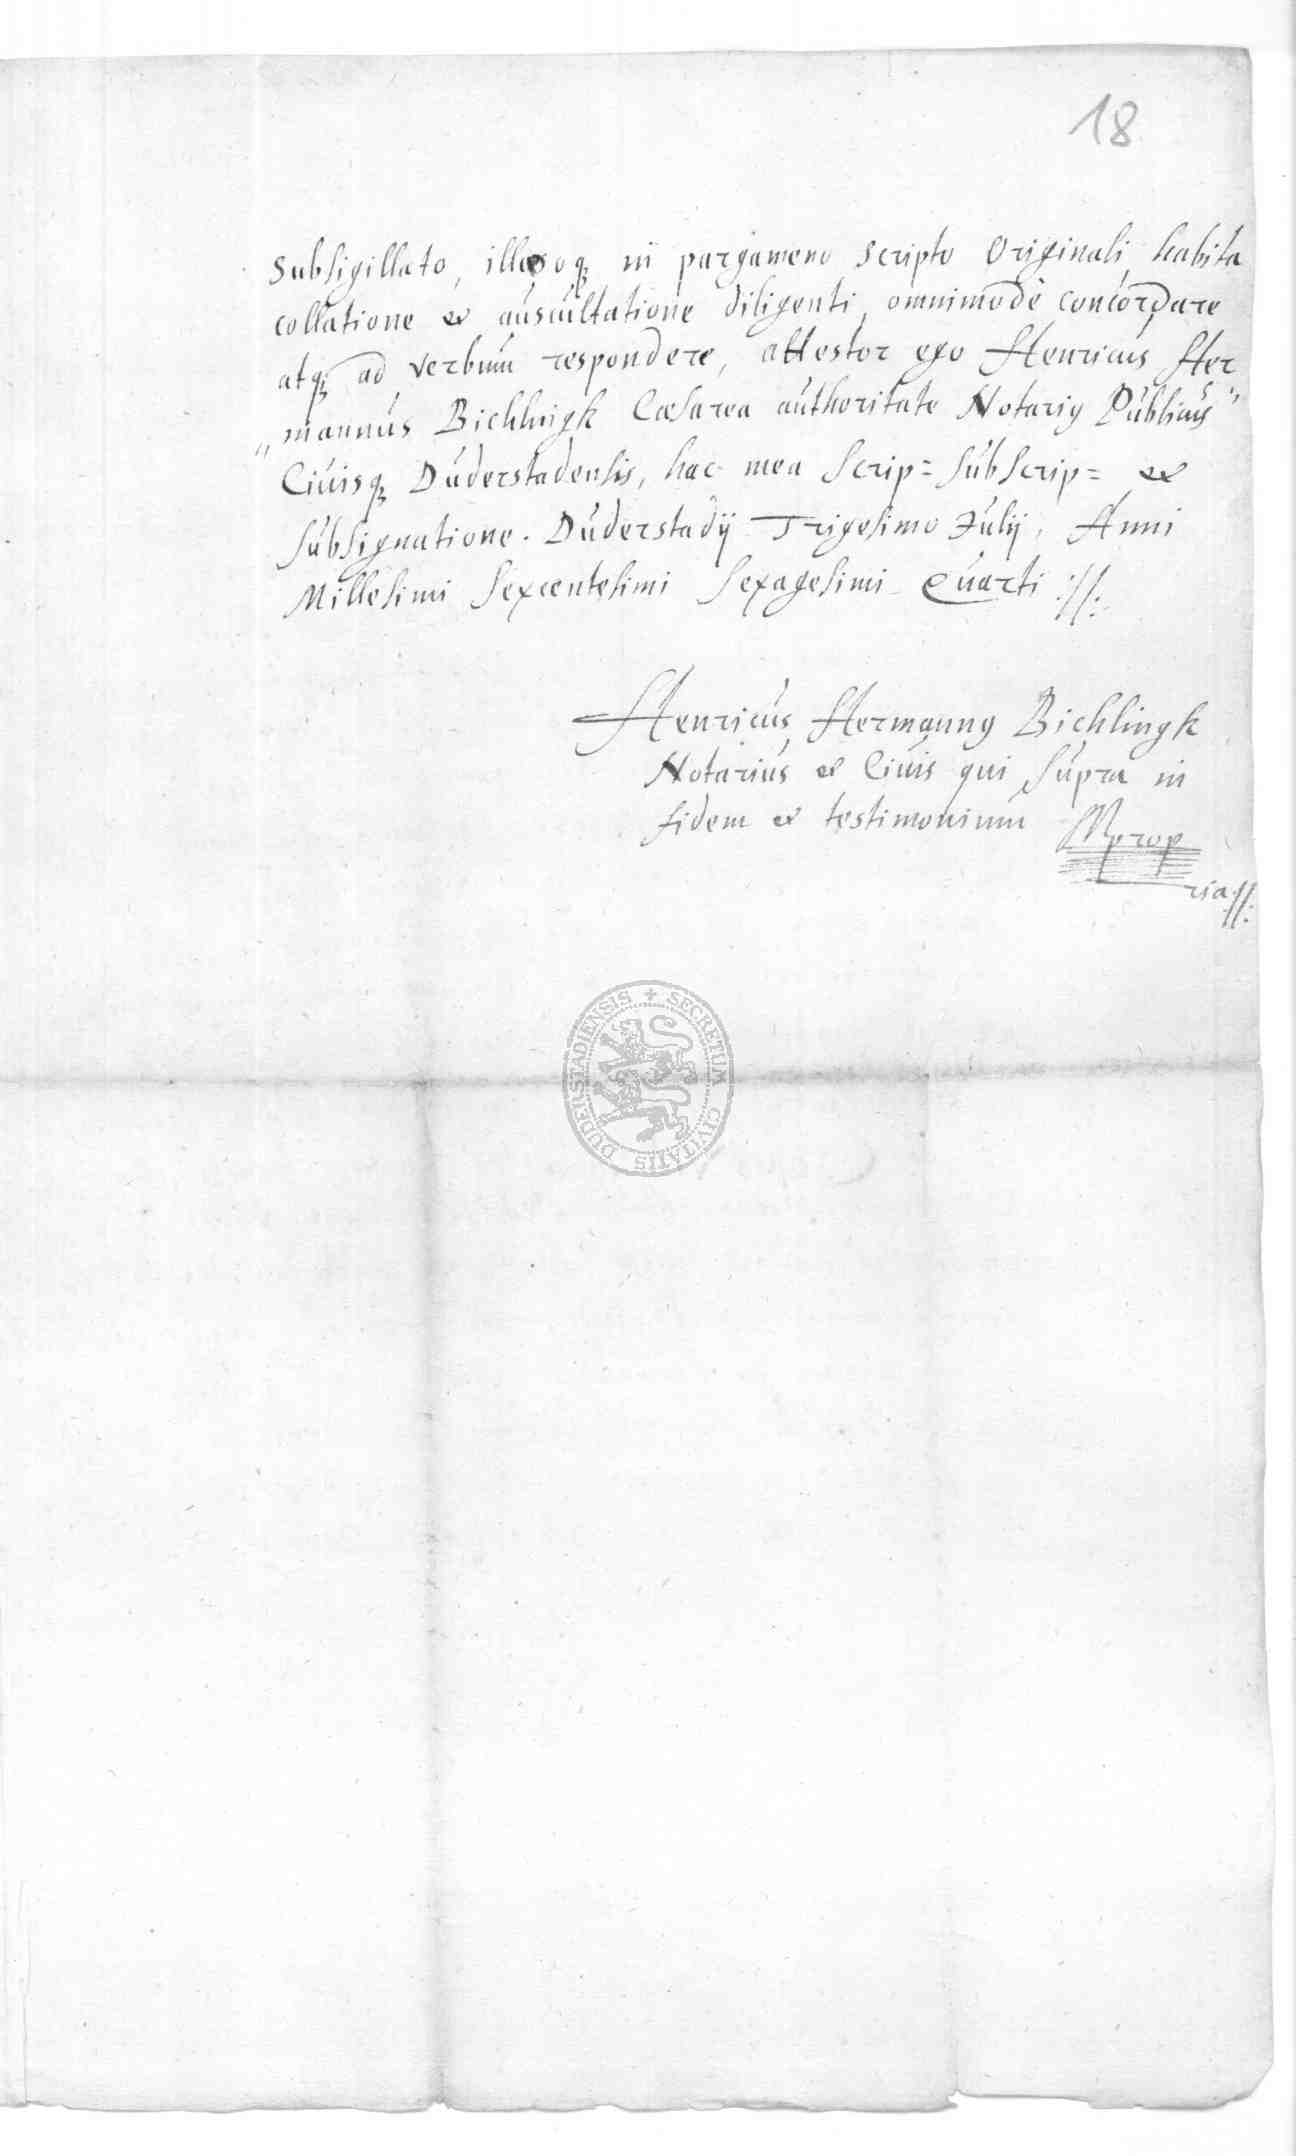 18
Subsigillato, illæsoq; in pargameno scripto Originali, habita
collatione & auscultatione diligenti, omnimodè concordare
atq; ad verbum respondere, attestor ego Henricus Her„
„mannus Bichlingk Cæsarea authoritate Notariꝰ Publicus
Ciuisq; Duderstadensis, hac mea Scrip= Subscrip= &
Subsignatione. Duderstadij Trigesimo Julij, Anni
Millesimi Sexcentesimi Sexagesimi Quarti ://:
Henricus Hermannꝰ Bichlingk
Notarius & Ciuis qui supra in
fidem & testimonium Mprop
ria://:
SECRETUM CIVITATIS DUDERSTADIENSIS